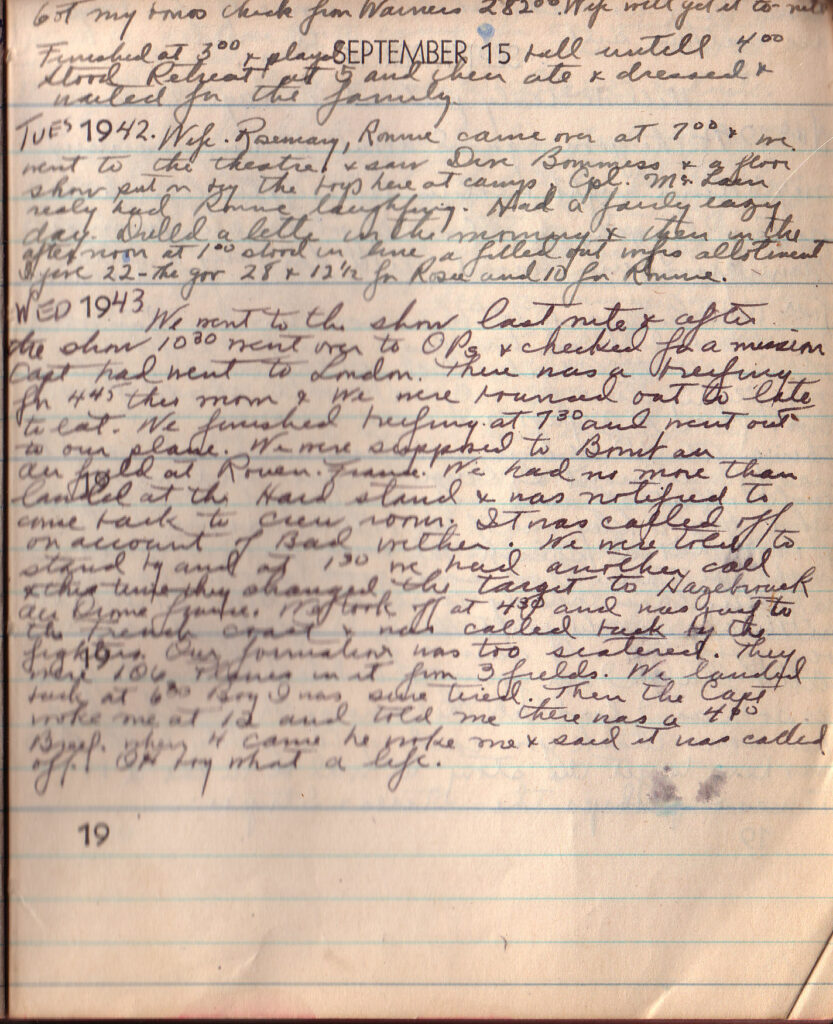 Got my bonos check from Warners 282⁰⁰. Wife will get it to-nite
Finished at 3⁰⁰ & played SEPTEMBER 15 ball untill 4⁰⁰
stood Retreat at 5 and then ate & dressed &
waited for the family.
TUES 1942. Wife. Rosemary, Ronnie came over at 7⁰⁰ & we
went to the theatre. & saw Dive Bommess & a floor
show put on by the boys here at camp. Cpl. Mc Lain
realy had Ronnie laughfing. Had a fairly eazy
day. Drilled a little in the morning & then in the
afternoon at 1⁰⁰ stood in line a filled out wifes allotiment
I give 22 - the gov 28 & 12½ for Rose and 10 for Ronnie.
WED 1943 We went to the show last nite & after
the show 10³⁰ went over to OPs & checked for a mission
Capt had went to London. There was a breefing
for 4⁴⁵ this morn & we were roused out to late
to eat. We finished breefing at 7³⁰ and went out
to our plane. We were supposed to Bomb an
air field at Rouen. France. We had no more than
landed at the Hard stand & was notified to
come back to crew room. It was called off
on account of Bad wether. We were told to
stand by and at 1³⁰ we had another call
& this time they changed the target to Hazebrouck
France. We took off at 4³⁰ and was just to
the French coast & was called back by the
fighters. Our formation was too scatered. They
were 106 planes in it from 3 fields. We landed
back at 6⁰⁰ Boy I was sure tired. Then the Capt
woke me at 12 and told me there was a 4³⁰
Breef. when 4 came he woke me & said it was called
off. OH boy what a life.
19
19
19